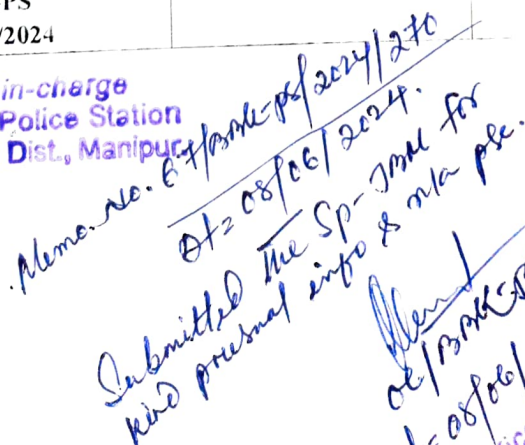 PS
/2024
in-charge
Police Station
Dist., Manipur
Memo. No. 67/BBK-PS/2024/270
Dt= 08/06/2024.
Submitted the SP-JBM for
kind info & n/a pse.
OC/BBK-
08/06/